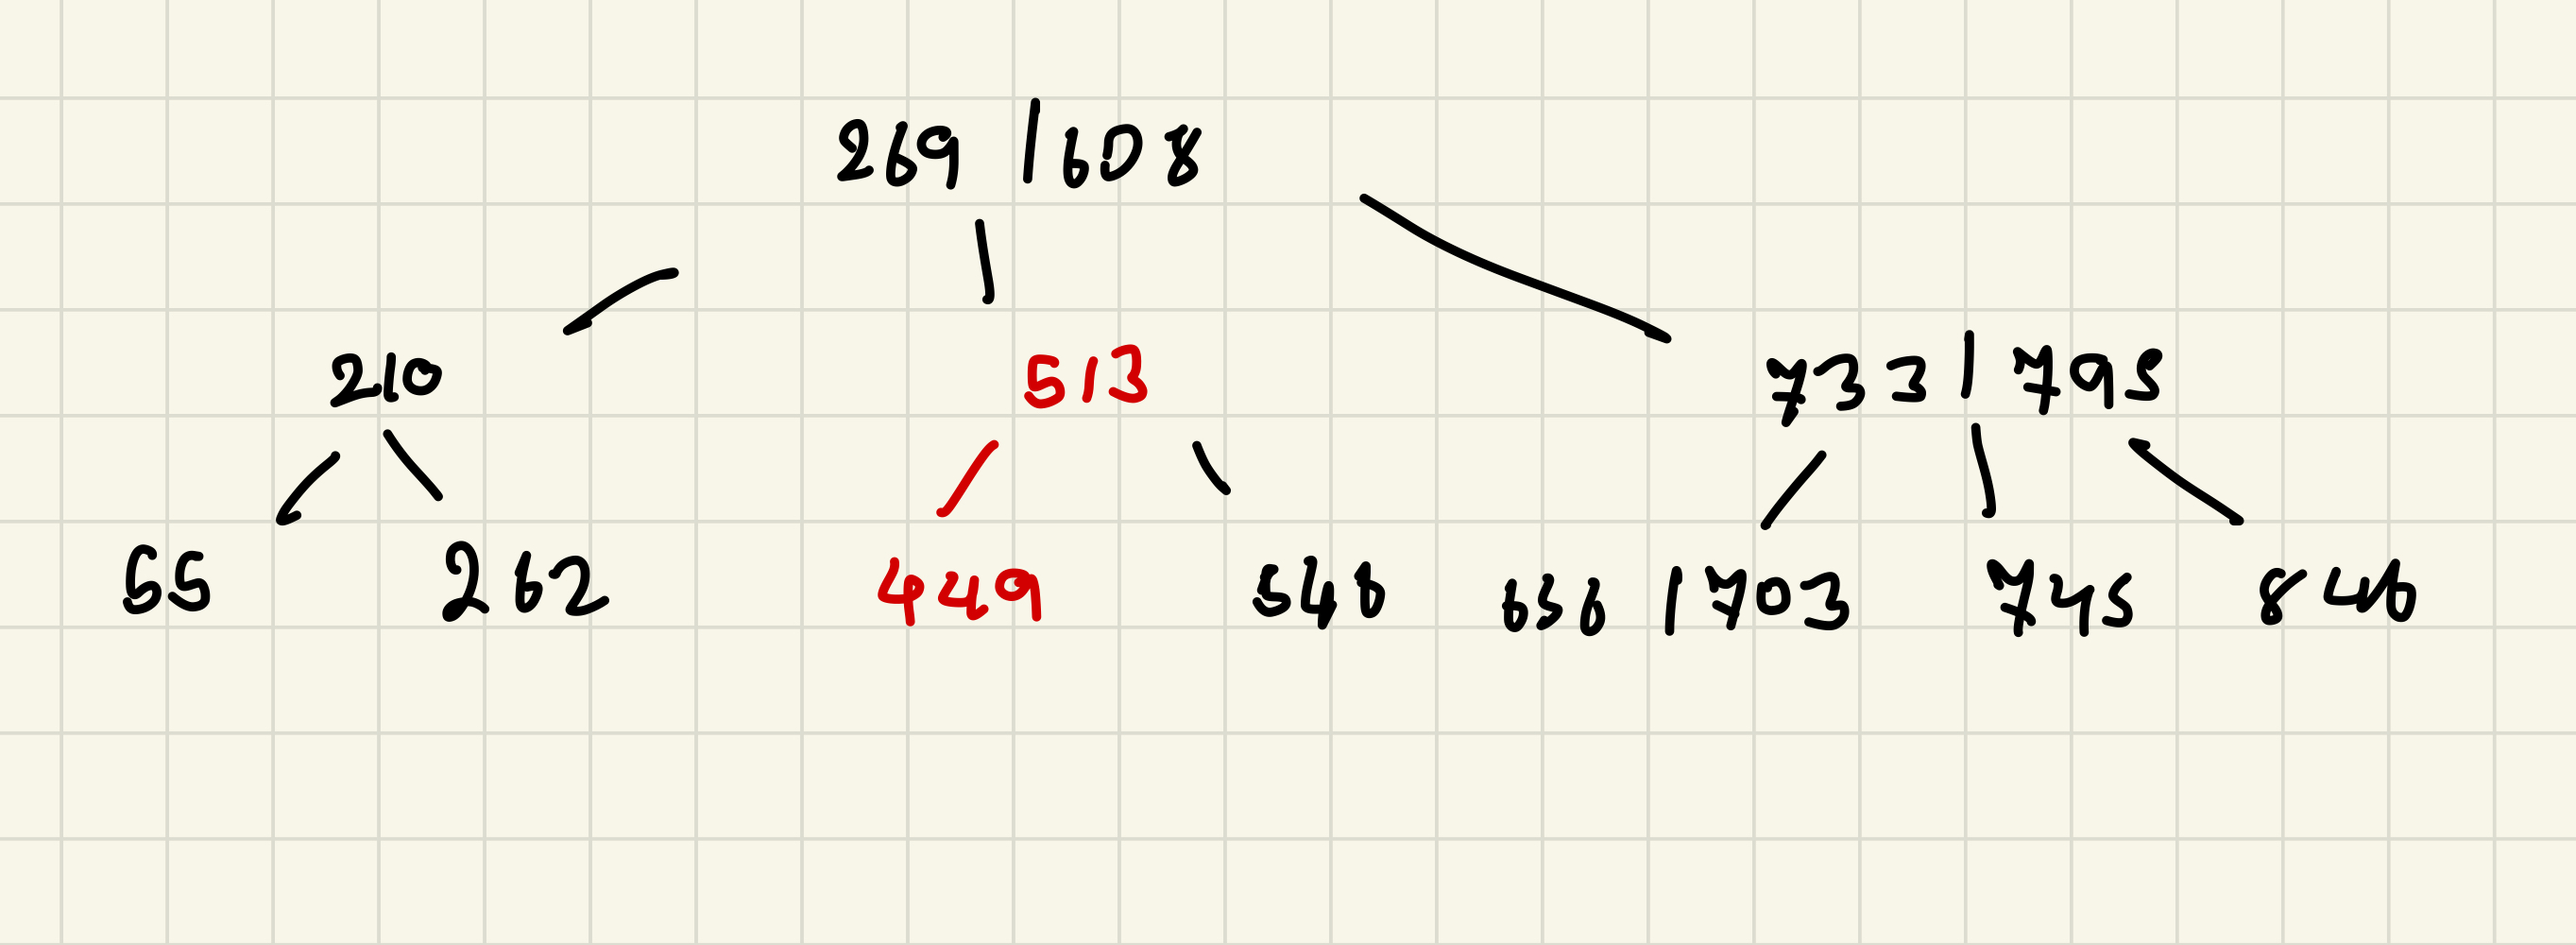 269 | 608
210 513 733 | 795
55 262 449 546 656 | 703 745 846